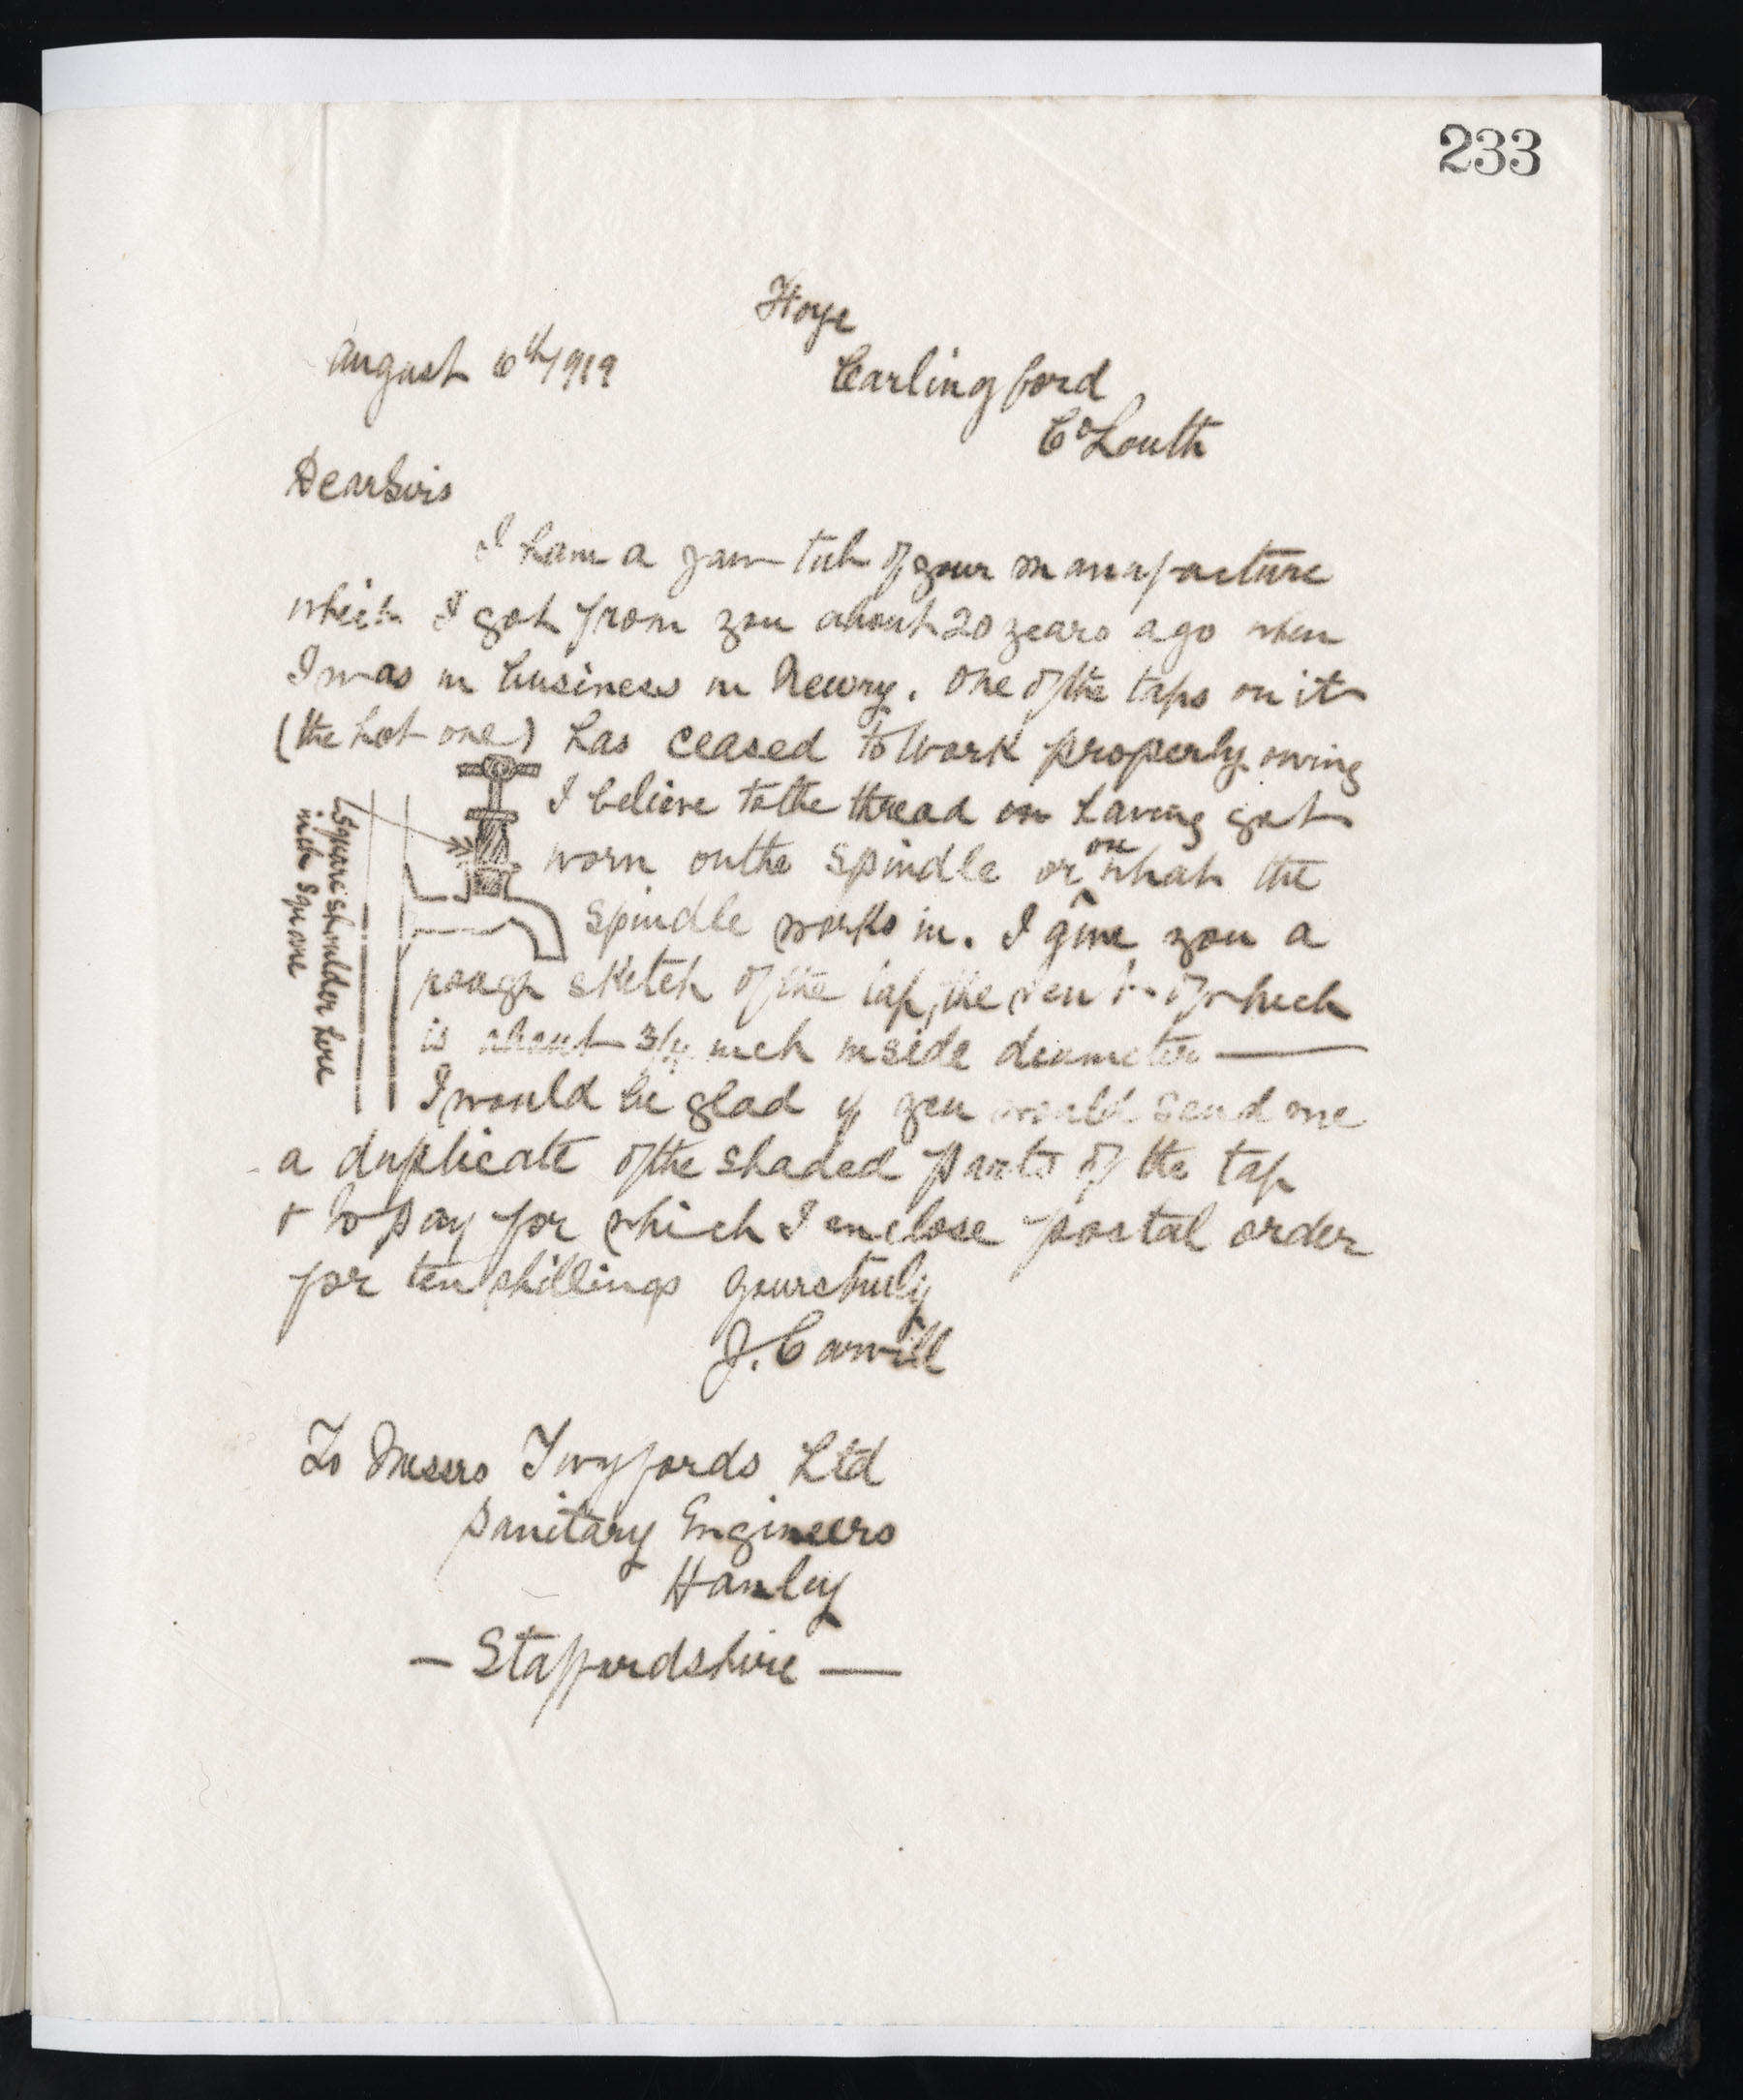 233
August 6th 1919
Carlingford
Co Louth
Dear Sirs
I have a tub of your manufacture
which I got from you about 20 years ago when
I was in business in Newry. One of the taps on it
(the hot one) has ceased to work properly owing
I believe to the thread on having got
worn on the spindle or on what the
spindle works in. I give you a
rough sketch of the tap, the of which
is about 3/4 inch inside diameter —
Square shoulder here
inch square
I would be glad if you would send me
a duplicate of the shaded parts of the tap
& to pay for which I enclose postal order
for ten shillings yours truly
J. Carvill
To Messrs Twyfords Ltd
Sanitary Engineers
Hanley
— Staffordshire —